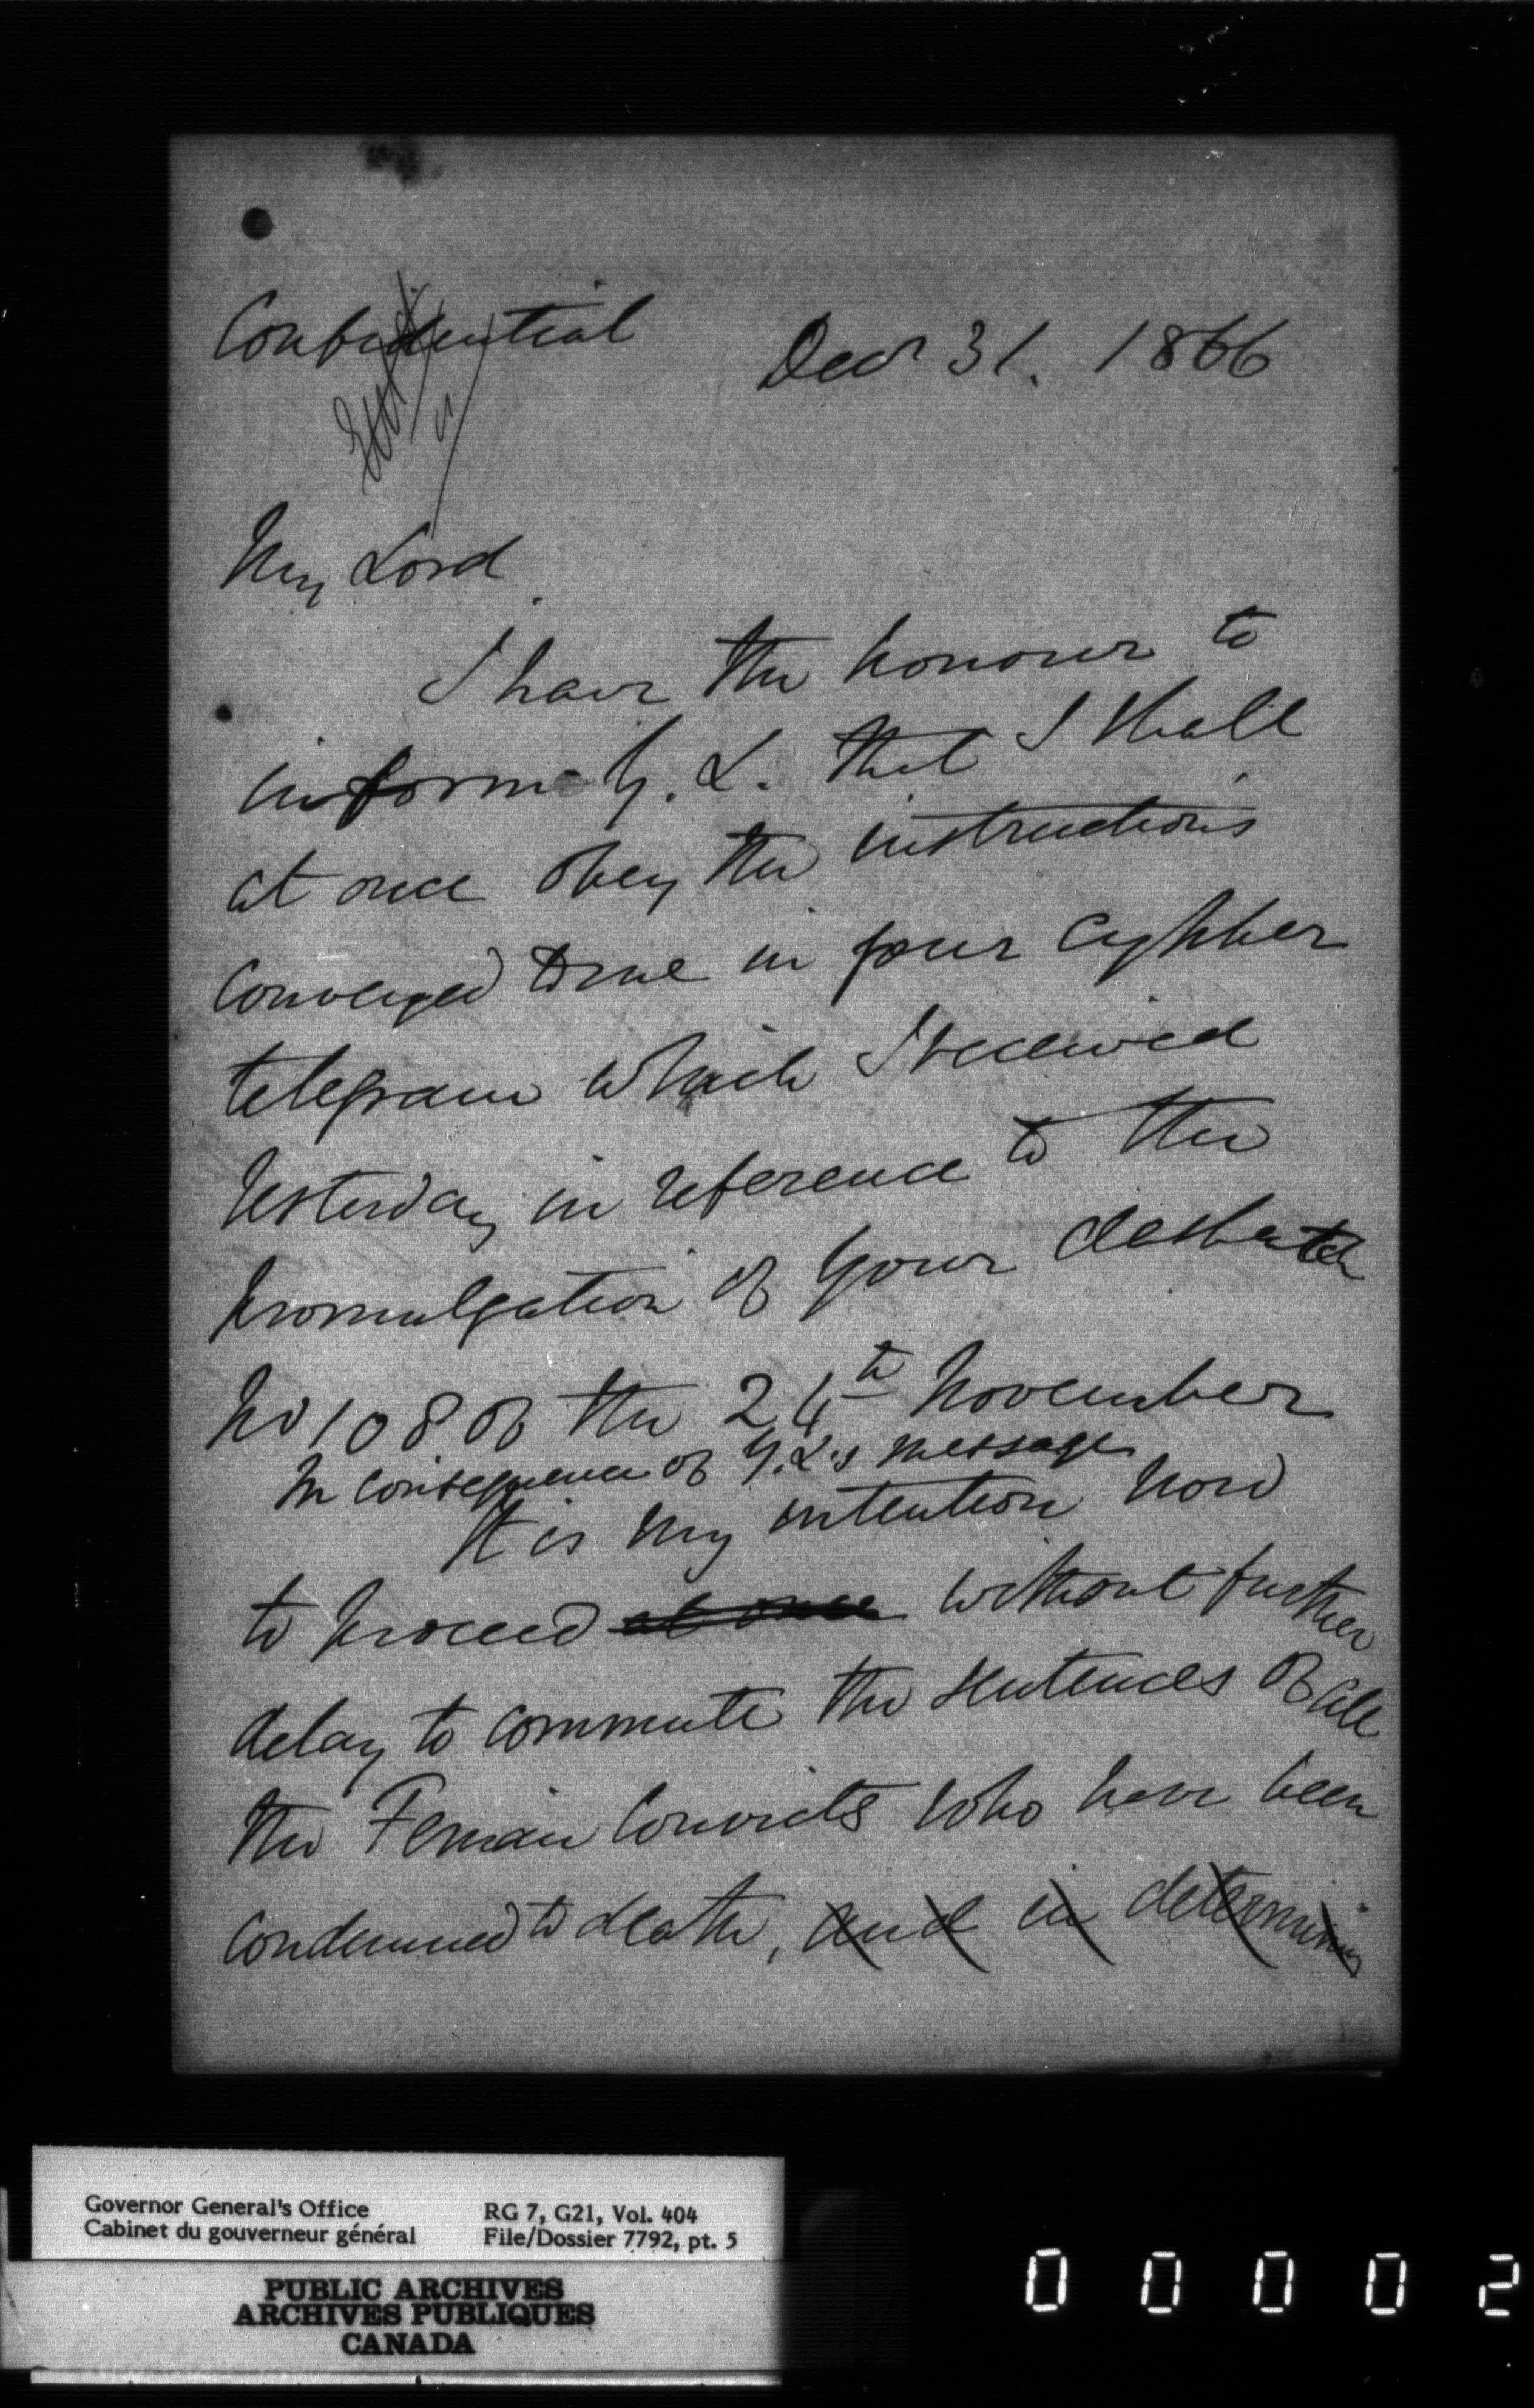 Confidential
Decr 31. 1866
My Lord
I have the honour to
inform Y. L. that I shall
at once obey the instructions
conveyed to me in your cypher
telegram which I received
yesterday in reference to the
promulgation of your despatch
No 108 of the 24th November
In consequence of Y. L.'s message
It is my intention now
to proceed at once without further
delay to commute the sentences of all
the Fenian Convicts who have been
condemned to death, and in determining
Governor General's Office
Cabinet du gouverneur général
RG 7, G21, Vol. 404
File/Dossier 7792, pt. 5
PUBLIC ARCHIVES
ARCHIVES PUBLIQUES
CANADA
0 0 0 0 2